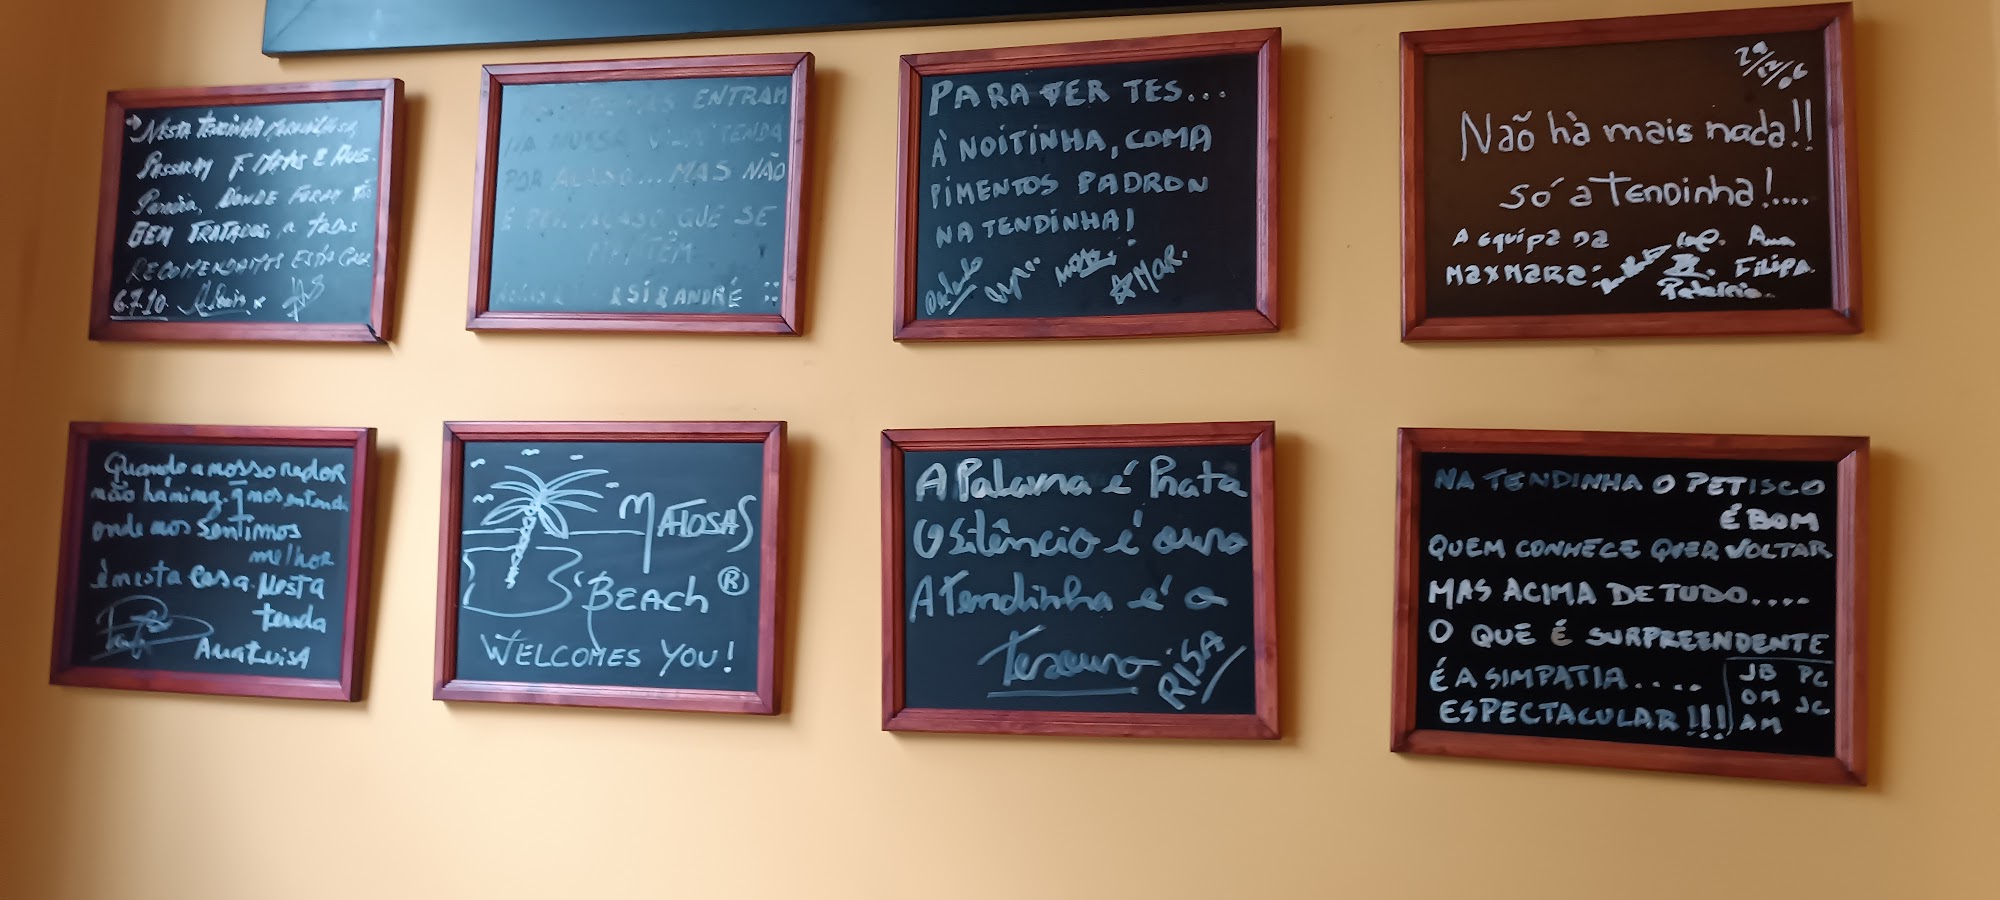 NESTA TENDINHA
PASSARAM F. MATOS E
DONDE FORAM
BEM TRATADOS, A TODOS
RECOMENDAMOS ESTA CASA
6.7.10.
ENTRAM
NA NOSSA TENDA
POR ACASO... MAS NÃO
É POR ACASO QUE SE
MANTÊM
& SI & ANDRÉ
PARA VER TES...
À NOITINHA, COMA
PIMENTOS PADRON
NA TENDINHA!
MAR.
29/12/06
Naõ hà mais nada!!
só a Tendinha!....
A equipa da
MaxMara: Ana
Filipa.
Patrícia.
Quando a nosso redor
não há ning. q̃ nos entenda
onde nos sentimos
melhor
é nesta Casa. Nesta
tenda
Ana Luisa
MATOSAS
BEACH ®
WELCOMES YOU!
A Palavra é Prata
O silêncio é ouro
A Tendinha é o
Tesouro.
RISA
NA TENDINHA O PETISCO
É BOM
QUEM CONHECE QUER VOLTAR
MAS ACIMA DE TUDO....
O QUE É SURPREENDENTE
É A SIMPATIA....
ESPECTACULAR!!!
JB PC
OM JC
AM